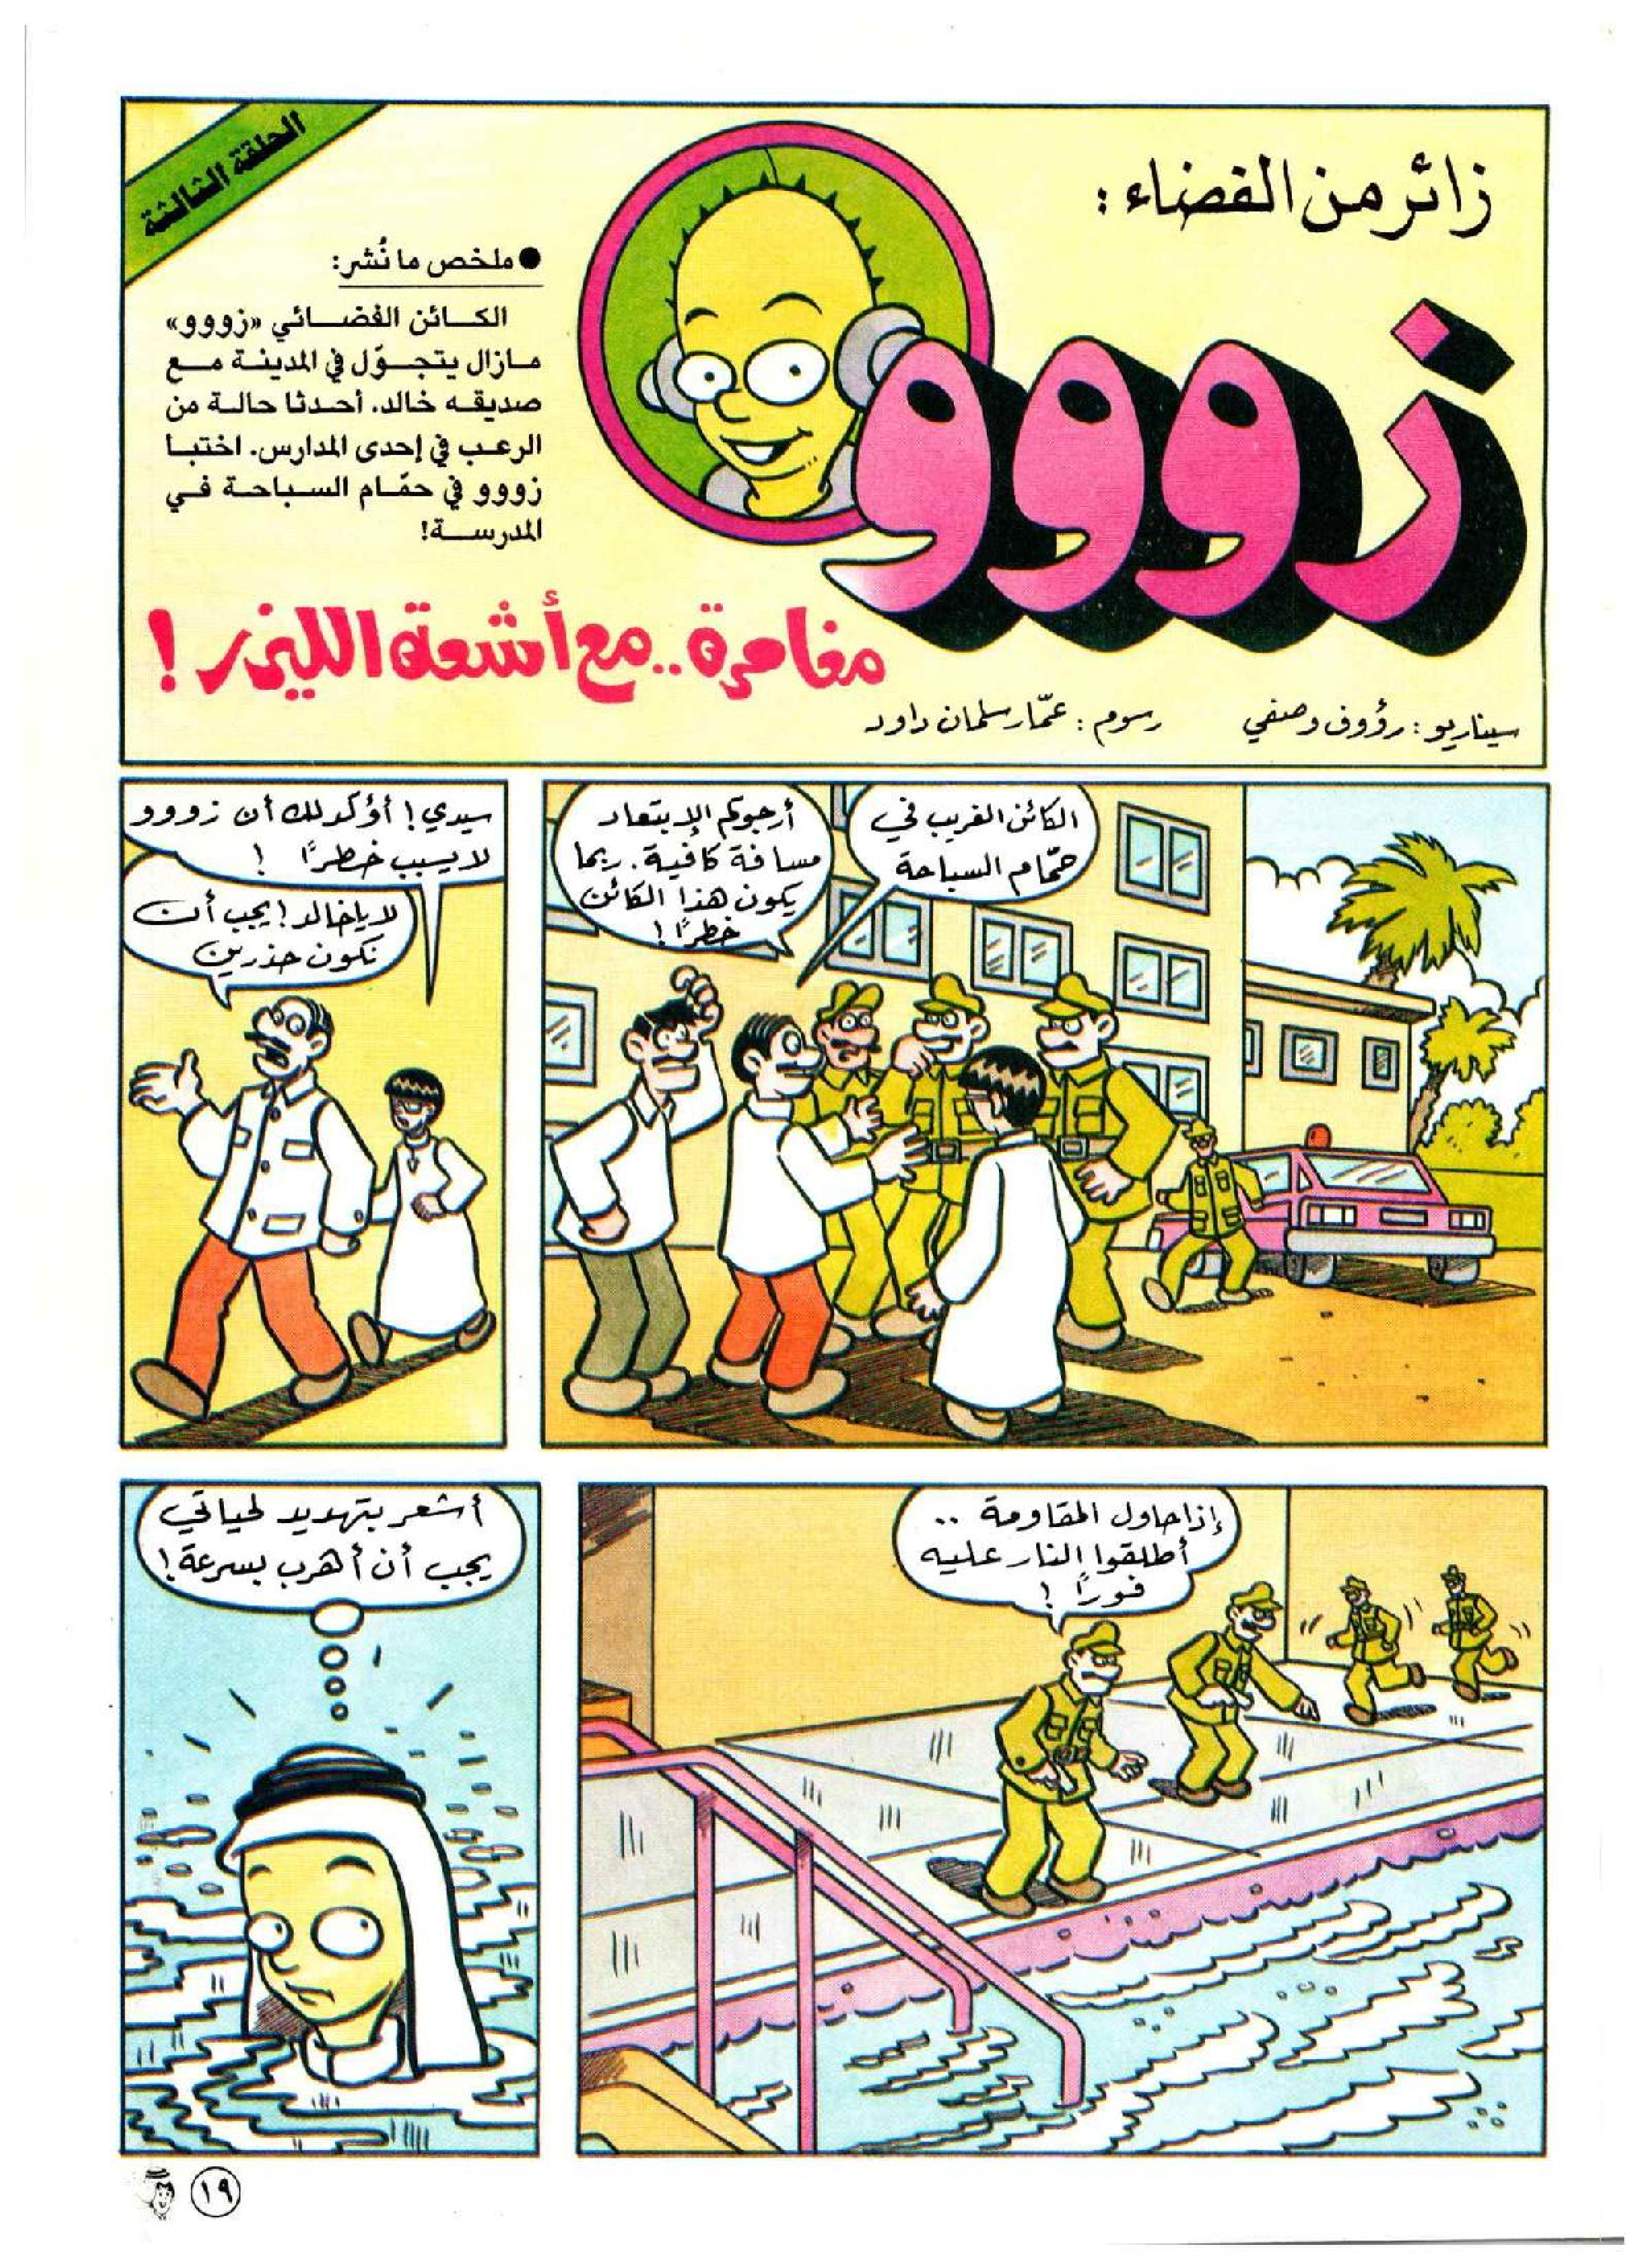 الحلقة الثالثة
زائر من الفضاء:
زووو
● ملخص ما نُشر:
الكائن الفضائي «زووو»
مازال يتجوّل في المدينة مع
صديقه خالد. أحدثا حالة من
الرعب في إحدى المدارس. اختبا
زووو في حمّام السباحة في
المدرسة!
مغامرة.. مع أشعة الليزر!
سيناريو: رؤوف وصفي
رسوم: عمّار سلمان داود
الكائن الغريب في
حمّام السباحة
أرجوكم الابتعاد
مسافة كافية. ربما
يكون هذا الكائن
خطرًا!
سيدي! أؤكد لك أن زووو
لا يسبب خطرًا!
لا يا خالد! يجب أن
نكون حذرين
إذا حاول المقاومة ..
أطلقوا النار عليه
فورًا!
أشعر بتهديد لحياتي
يجب أن أهرب بسرعة!
١٩